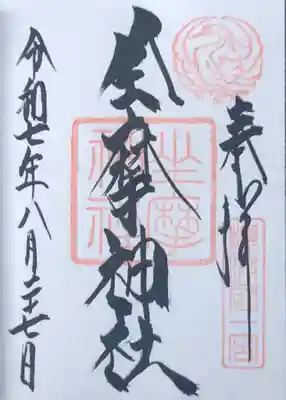 奉拝
坐摩神社
坐摩
神社
令和七年八月二十七日